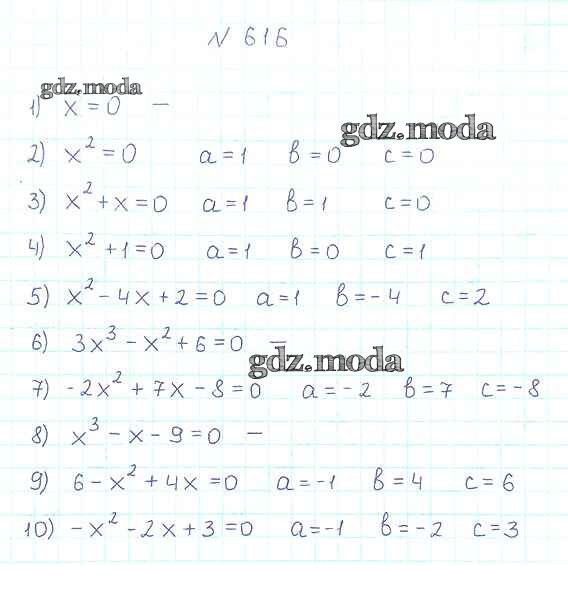 N 616
gdz.moda
1) x = 0 —
gdz.moda
2) x² = 0 a = 1 b = 0 c = 0
3) x² + x = 0 a = 1 b = 1 c = 0
4) x² + 1 = 0 a = 1 b = 0 c = 1
5) x² - 4x + 2 = 0 a = 1 b = - 4 c = 2
6) 3x³ - x² + 6 = 0 —
gdz.moda
7) - 2x² + 7x - 8 = 0 a = - 2 b = 7 c = - 8
8) x³ - x - 9 = 0 —
9) 6 - x² + 4x = 0 a = -1 b = 4 c = 6
10) - x² - 2x + 3 = 0 a = -1 b = - 2 c = 3